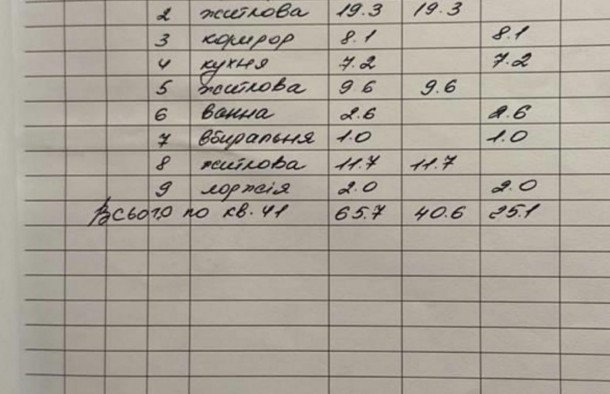 2 житлова 19.3 19.3
3 коридор 8.1 8.1
4 кухня 7.2 7.2
5 житлова 9.6 9.6
6 ванна 2.6 2.6
7 вбиральня 1.0 1.0
8 житлова 11.7 11.7
9 лоджія 2.0 2.0
Всього по кв. 41 65.7 40.6 25.1